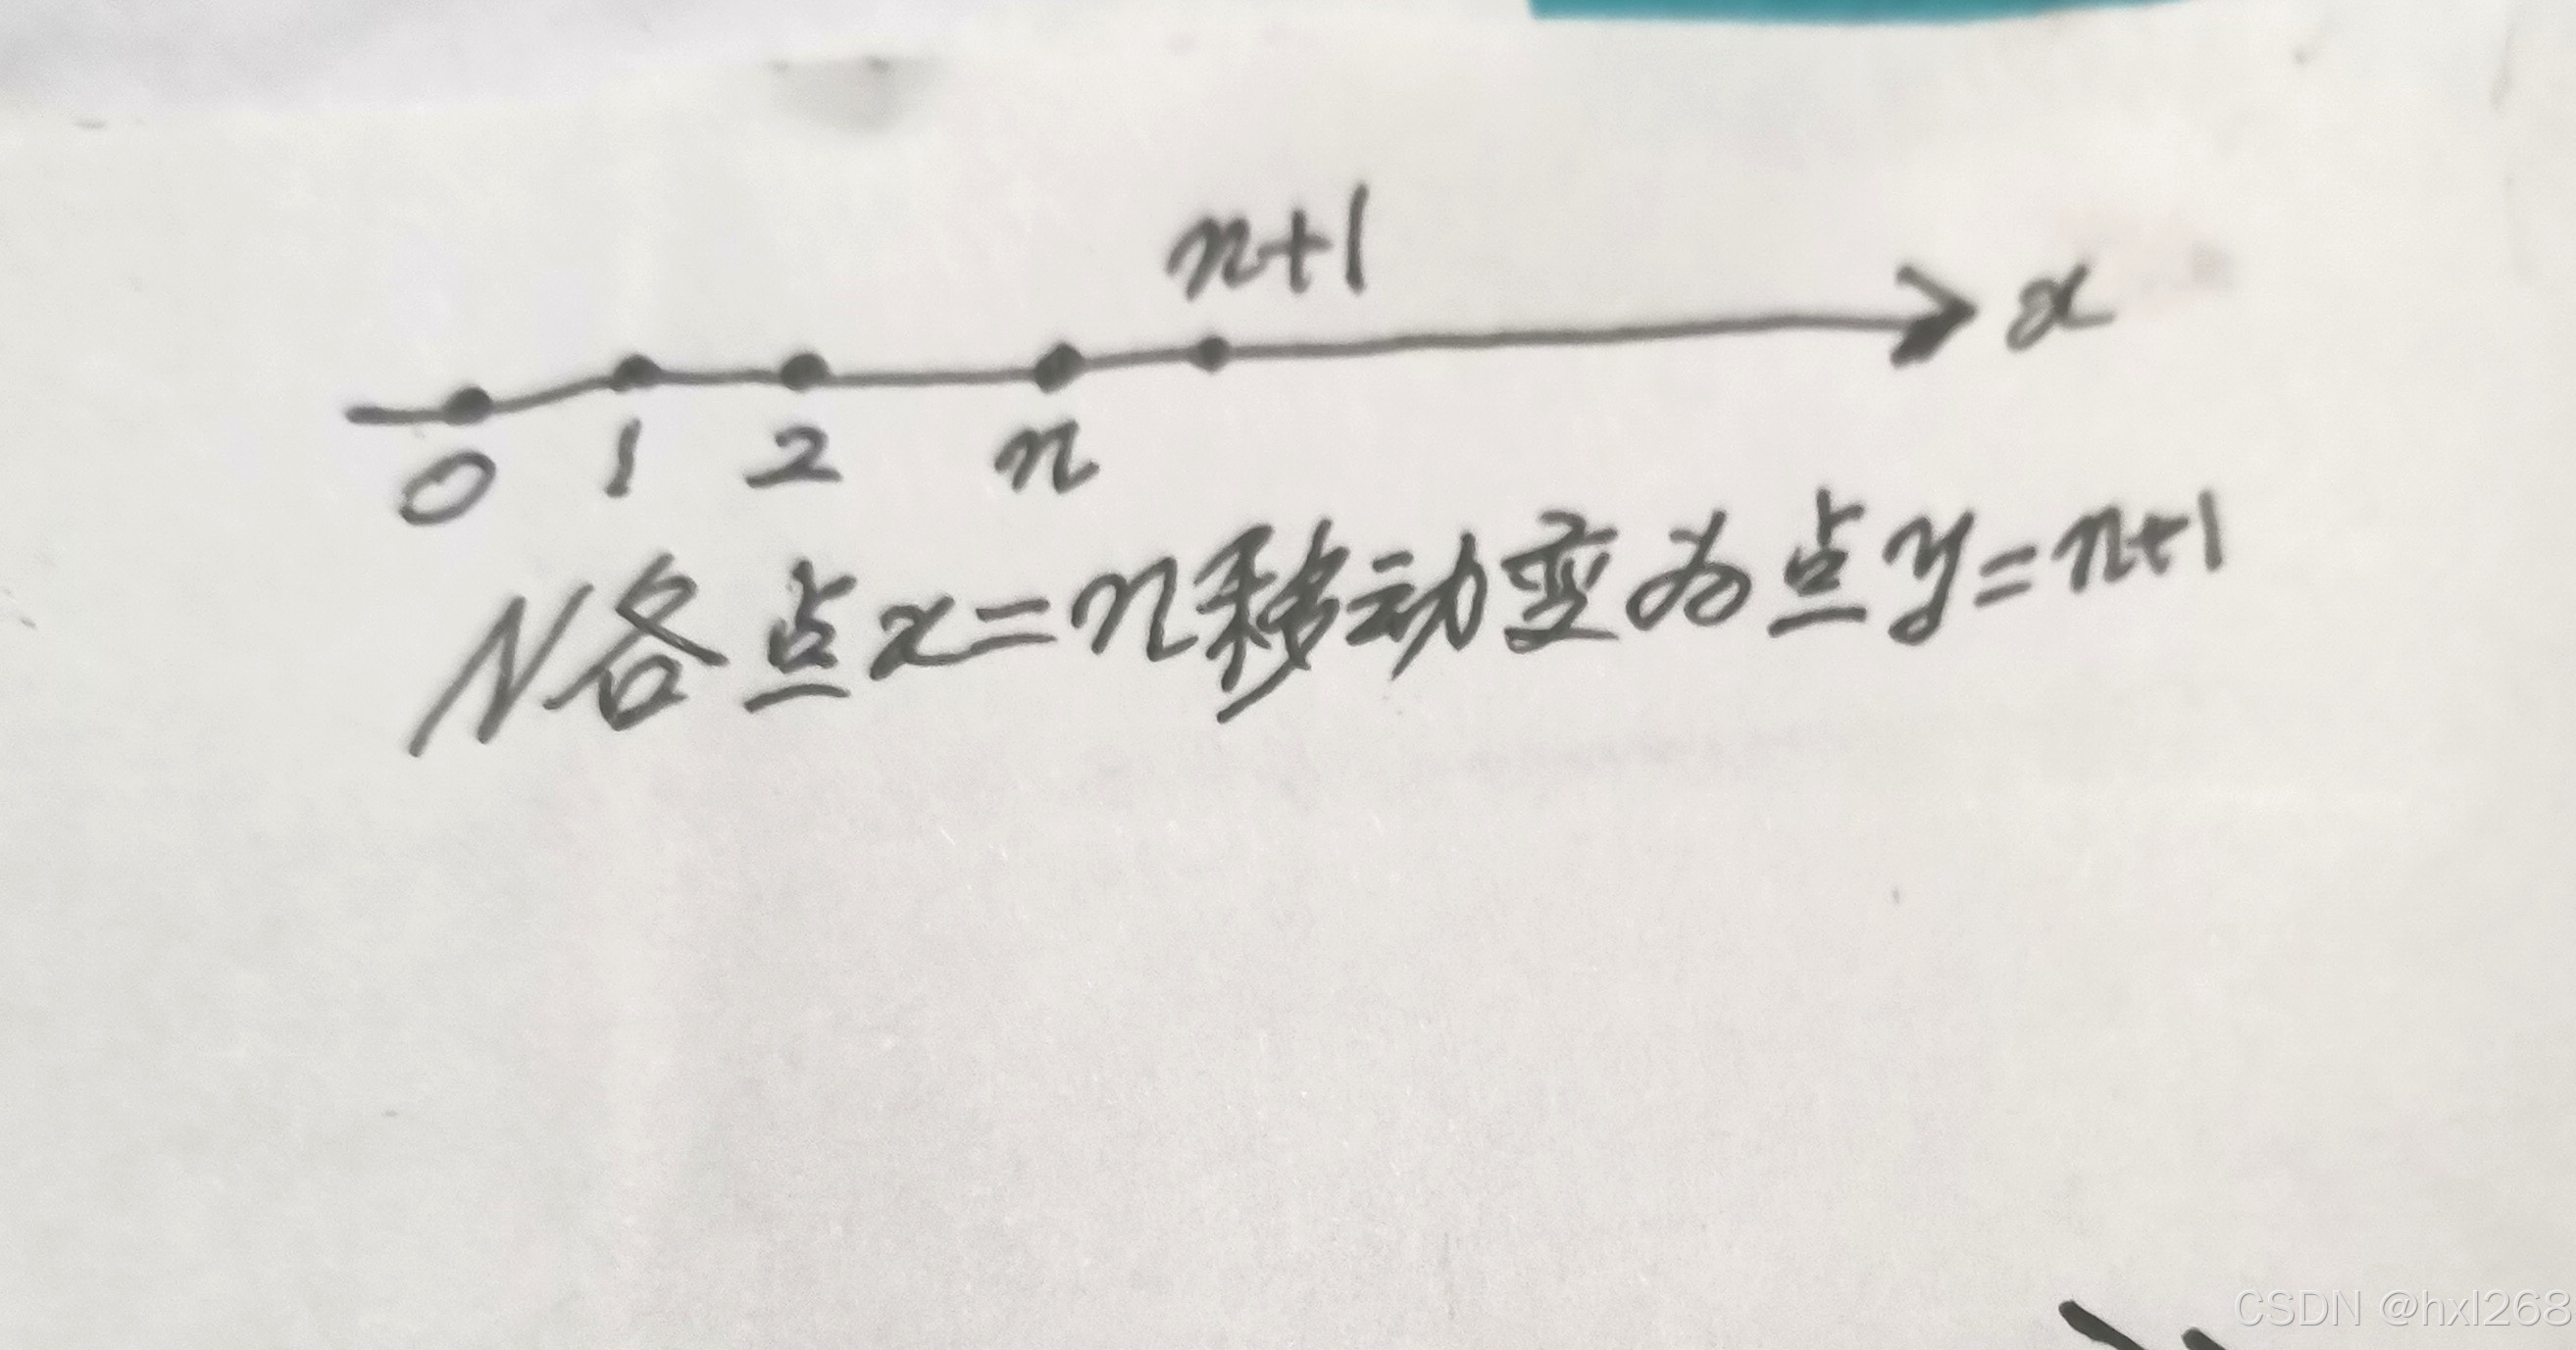 n+1
x
0 1 2 n
N各点x=n移动变为点y=n+1
CSDN @hxl268